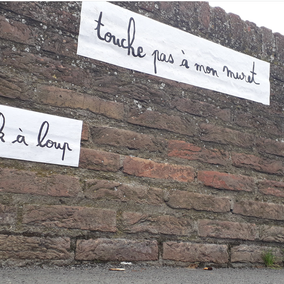 touche pas à mon muret
à loup